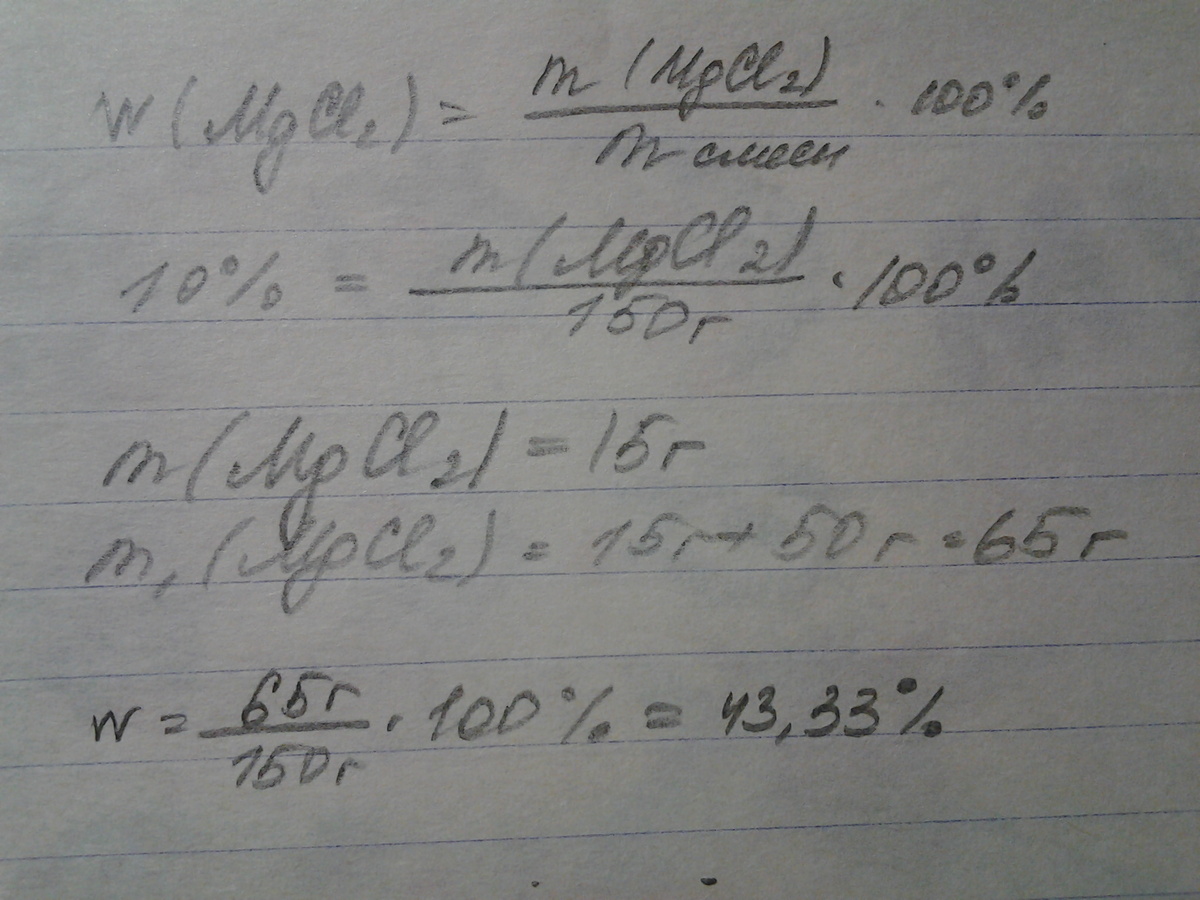 w (MgCl₂) = m (MgCl₂) / m смеси · 100%
10% = m (MgCl₂) / 150г · 100%
m (MgCl₂) = 15г
m₁ (MgCl₂) = 15г + 50г = 65г
w = 65г / 150г · 100% = 43,33%